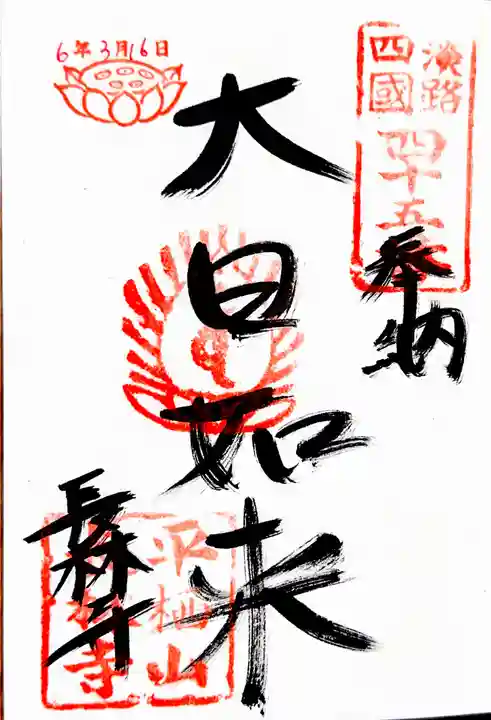 6年3月16日
淡路
四國
四十五
奉納
大日如来
長林寺
平
山
寺